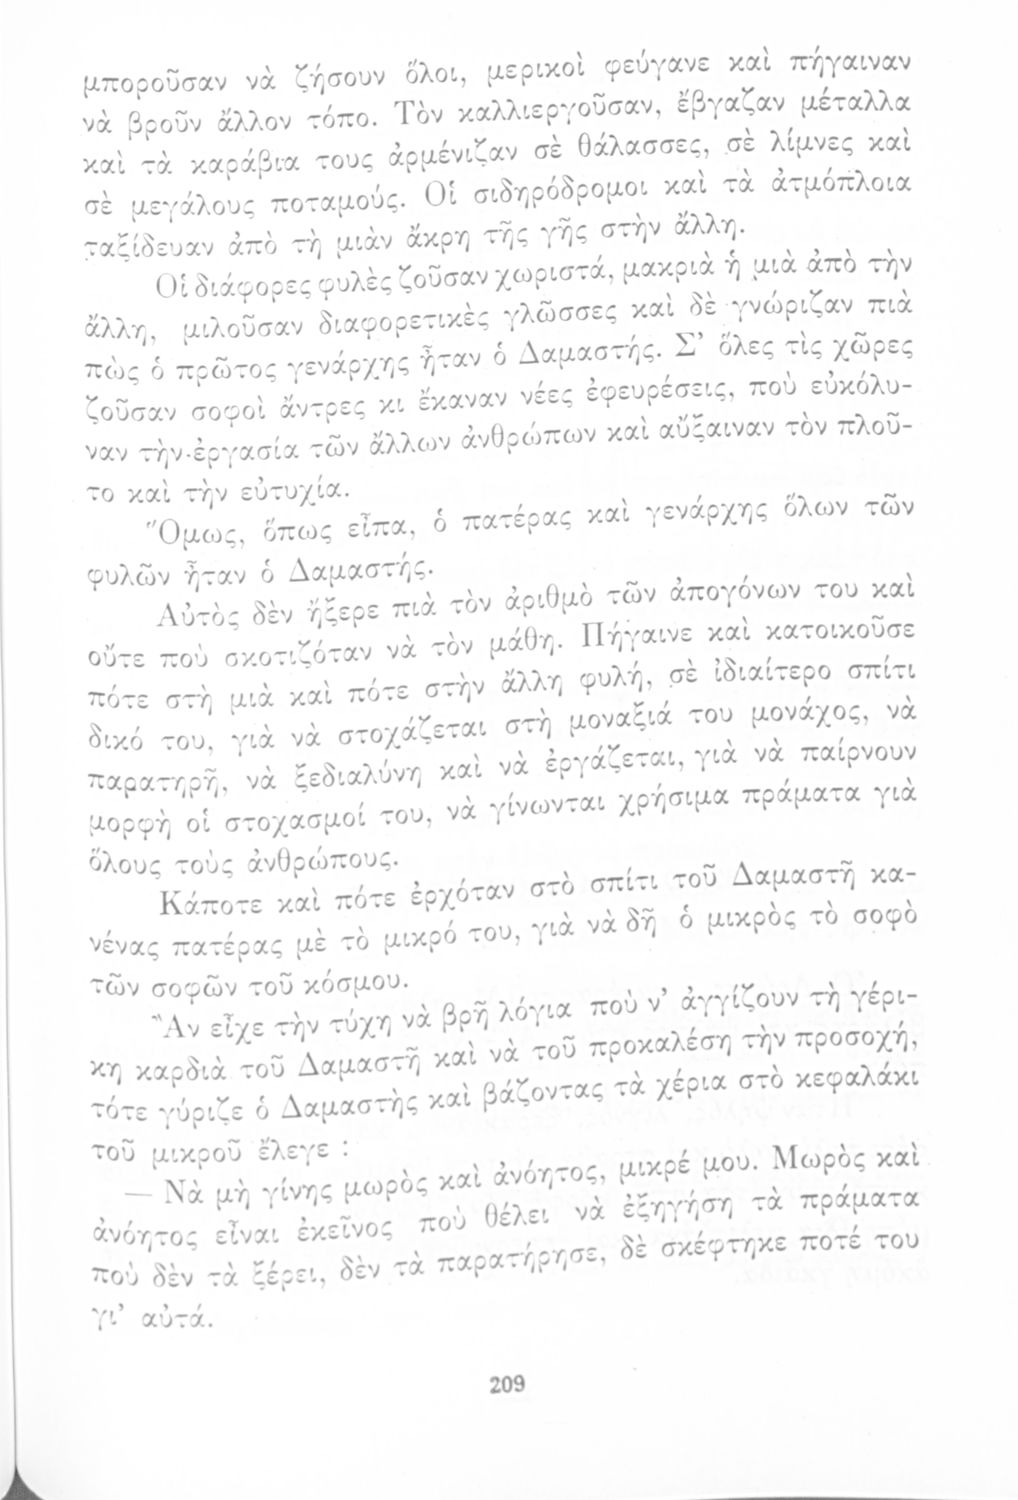 μποροῦσαν νὰ ζήσουν ὅλοι, μερικοὶ φεύγανε καὶ πήγαιναν
νὰ βροῦν ἄλλον τόπο. Τὸν καλλιεργοῦσαν, ἔβγαζαν μέταλλα
καὶ τὰ καράβια τους ἀρμένιζαν σὲ θάλασσες, σὲ λίμνες καὶ
σὲ μεγάλους ποταμούς. Οἱ σιδηρόδρομοι καὶ τὰ ἀτμόπλοια
ταξίδευαν ἀπὸ τὴ μιὰν ἄκρη τῆς γῆς στὴν ἄλλη.
Οἱ διάφορες φυλὲς ζοῦσαν χωριστά, μακριὰ ἡ μιὰ ἀπὸ τὴν
ἄλλη, μιλοῦσαν διαφορετικὲς γλῶσσες καὶ δὲ γνώριζαν πιὰ
πὼς ὁ πρῶτος γενάρχης ἦταν ὁ Δαμαστής. Σ' ὅλες τὶς χῶρες
ζοῦσαν σοφοὶ ἄντρες κι ἔκαναν νέες ἐφευρέσεις, ποὺ εὐκόλυ-
ναν τὴν ἐργασία τῶν ἄλλων ἀνθρώπων καὶ αὔξαιναν τὸν πλοῦ-
το καὶ τὴν εὐτυχία.
Ὅμως, ὅπως εἶπα, ὁ πατέρας καὶ γενάρχης ὅλων τῶν
φυλῶν ἦταν ὁ Δαμαστής.
Αὐτὸς δὲν ἤξερε πιὰ τὸν ἀριθμὸ τῶν ἀπογόνων του καὶ
οὔτε ποὺ σκοτιζόταν νὰ τὸν μάθη. Πήγαινε καὶ κατοικοῦσε
πότε στὴ μιὰ καὶ πότε στὴν ἄλλη φυλή, σὲ ἰδιαίτερο σπίτι
δικό του, γιὰ νὰ στοχάζεται στὴ μοναξιά του μονάχος, νὰ
παρατηρῆ, νὰ ξεδιαλύνη καὶ νὰ ἐργάζεται, γιὰ νὰ παίρνουν
μορφὴ οἱ στοχασμοί του, νὰ γίνωνται χρήσιμα πράματα γιὰ
ὅλους τοὺς ἀνθρώπους.
Κάποτε καὶ πότε ἐρχόταν στὸ σπίτι τοῦ Δαμαστῆ κα-
νένας πατέρας μὲ τὸ μικρό του, γιὰ νὰ δῆ ὁ μικρὸς τὸ σοφὸ
τῶν σοφῶν τοῦ κόσμου.
Ἂν εἶχε τὴν τύχη νὰ βρῆ λόγια ποὺ ν' ἀγγίζουν τὴ γέρι-
κη καρδιὰ τοῦ Δαμαστῆ καὶ νὰ τοῦ προκαλέση τὴν προσοχή,
τότε γύριζε ὁ Δαμαστὴς καὶ βάζοντας τὰ χέρια στὸ κεφαλάκι
τοῦ μικροῦ ἔλεγε :
— Νὰ μὴ γίνης μωρὸς καὶ ἀνόητος, μικρέ μου. Μωρὸς καὶ
ἀνόητος εἶναι ἐκεῖνος ποὺ θέλει νὰ ἐξηγήση τὰ πράματα
ποὺ δὲν τὰ ξέρει, δὲν τὰ παρατήρησε, δὲ σκέφτηκε ποτέ του
γι' αὐτά.
209